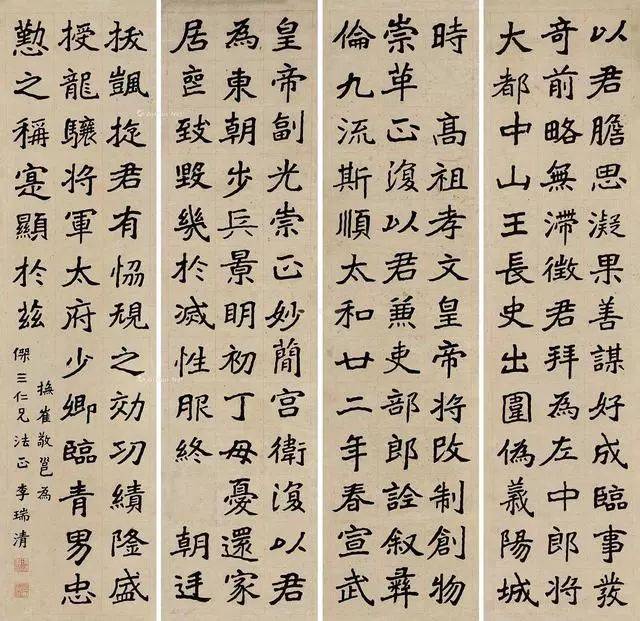 以君膽思凝果善謀好成臨事發
奇前略無滯徵君拜為左中郎將
大都中山王長史出圍偽義陽城
時 高祖孝文皇帝將改制創物
崇革正復以君兼吏部郎詮叙彝
倫九流斯順太和廿二年春宣武
皇帝副光崇正妙簡宮衛復以君
為東朝步兵景明初丁母憂還家
居喪致毀幾於滅性服終 朝廷
拔颯旋君有協規之効功績隆盛
授龍驤將軍太府少卿臨青男忠
懃之稱寔顯於茲
撫崔敬邕為
傑三仁兄法正 李瑞清